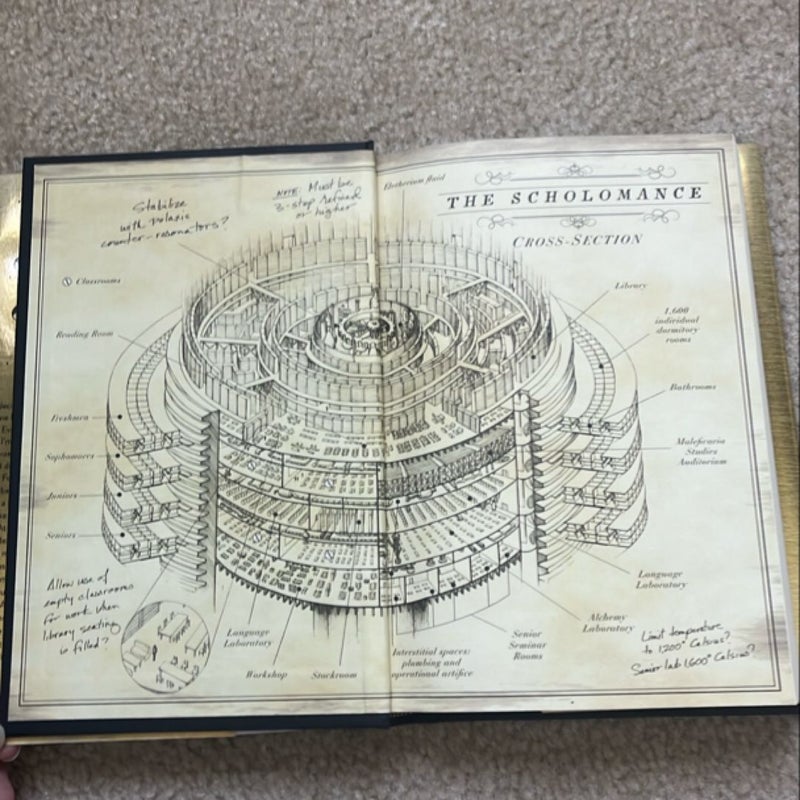 Etherium fluid
THE SCHOLOMANCE
CROSS-SECTION
Stabilize
with polaric
counter-resonators?
NOTE: Must be
3-stop refined
or higher
Classrooms
Reading Room
Freshmen
Sophomores
Juniors
Seniors
Library
1,600
individual
dormitory
rooms
Bathrooms
Maleficaria
Studies
Auditorium
Allow use of
empty classrooms
for work when
library seating
is filled?
Language
Laboratory
Workshop
Stockroom
Interstitial spaces:
plumbing and
operational artifice
Senior
Seminar
Rooms
Alchemy
Laboratory
Language
Laboratory
Limit temperature
to 1,200° Celsius?
Senior lab 1,600° Celsius?